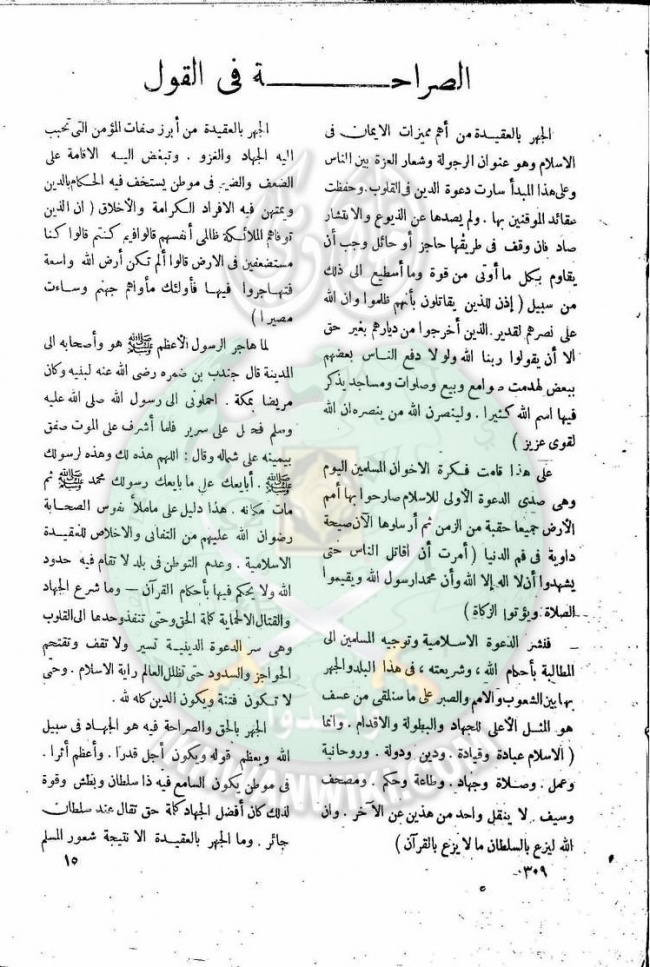 الصراحة فى القول
الجهر بالعقيدة من أهم مميزات الايمان فى
الاسلام وهو عنوان الرجولة وشعار العزة بين الناس
وعلى هذا المبدأ سارت دعوة الدين فى القلوب. وحفظت
عقائد الموقنين بها. ولم يصدها عن الذيوع والانتشار
صاد فان وقف فى طريقها حاجز أو حائل وجب أن
يقاوم بكل ما أوتى من قوة وما أسطيع الى ذلك
من سبيل ( إذن للذين يقاتلون بأنهم ظلموا وان الله
على نصرهم لقدير. الذين أخرجوا من ديارهم بغير حق
الا أن يقولوا ربنا الله ولولا دفع الناس بعضهم
ببعض لهدمت صوامع وبيع وصلوات ومساجد يذكر
فيها اسم الله كثيرا. ولينصرن الله من ينصره ان الله
لقوى عزيز )
على هذا قامت فكرة الاخوان المسلمين اليوم
وهى صدى الدعوة الأولى للاسلام صارحوا بها أمم
الأرض جميعا حقبة من الزمن ثم أرسلوها الآن صيحة
داوية فى قم الدنيا ( أمرت أن أقاتل الناس حتى
يشهدوا أن لا اله إلا الله وأن محمدا رسول الله ويقيموا
الصلاة ويؤتوا الزكاة )
فنشر الدعوة الاسلامية وتوجيه المسلمين الى
المطالبة بأحكام الله ، وشريعته ، فى هذا البلد والجهر
بها بين الشعوب والأمم والصبر على ما سنلقى من عسف
هو المثل الأعلى للجهاد والبطولة والاقدام. وانما
( الاسلام عبادة وقيادة. ودين ودولة. وروحانية
وعمل. وصلاة وجهاد. وطاعة وحكم. ومصحف
وسيف. لا ينفك واحد من هذين عن الآخر. وان
الله ليزع بالسلطان ما لا يزع بالقرآن )
٠٣٠٩
الجهر بالعقيدة من أبرز صفات المؤمن التى تحبب
اليه الجهاد والغزو. وتبغض اليه الاقامة على
الضعف والضيم فى موطن يستخف فيه الحكام بالدين
ويمتهن فيه الافراد الكرامة والأخلاق ( ان الذين
توفاهم الملائكة ظالمى أنفسهم قالوا فيم كنتم قالوا كنا
مستضعفين فى الارض قالوا ألم تكن أرض الله واسعة
فتهاجروا فيها فأولئك مأواهم جهنم وساءت
مصيرا )
لما هاجر الرسول الأعظم ﷺ هو وأصحابه الى
المدينة قال جندب بن ضمره رضى الله عنه لبنيه وكان
مريضا بمكة. احملونى الى رسول الله صلى الله عليه
وسلم فحمل على سرير فلما أشرف على الموت صفق
بيمينه على شماله وقال : اللهم هذه لك وهذه لرسولك
ﷺ. أبايعك على ما بايعك رسولك محمد ﷺ ثم
مات مكانه. هذا دليل على ما ملأ نفوس الصحابة
رضوان الله عليهم من التفانى والاخلاص للعقيدة
الاسلامية. وعدم التوطن فى بلد لا تقام فيه حدود
الله ولا يحكم فيها بأحكام القرآن — وما شرع الجهاد
والقتال الا لحماية كلمة الحق وحتى تنفذ وحدها الى القلوب
وهى سر الدعوة الدينية تسير ولا تقف وتقتحم
الحواجز والسدود حتى تظلل العالم راية الاسلام. وحتى
لا تكون فتنة ويكون الدين كله لله.
الجهر بالحق والصراحة فيه هو الجهاد فى سبيل
الله ويعظم قوله ويكون أجل قدرا. وأعظم أثرا.
فى موطن يكون السامع فيه ذا سلطان وبطش وقوة
لذلك كان أفضل الجهاد كلمة حق تقال عند سلطان
جائر. وما الجهر بالعقيدة الا نتيجة شعور المسلم
١٥
وأعدوا
IKHWANWIKI.COM